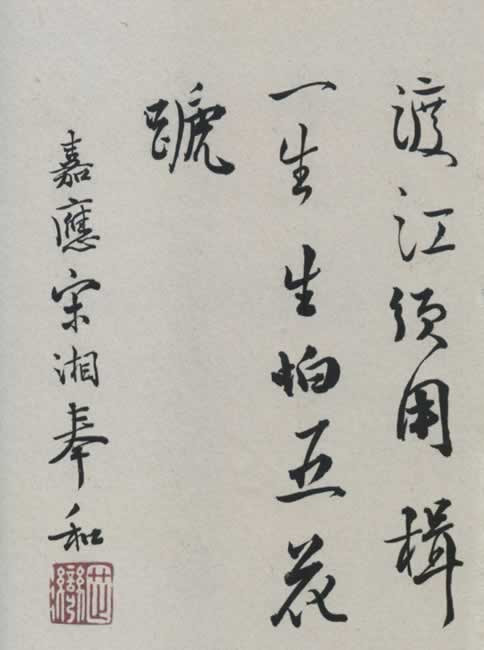 渡江須用楫
一生生怕五花
蹏
嘉應宋湘奉和
芷灣